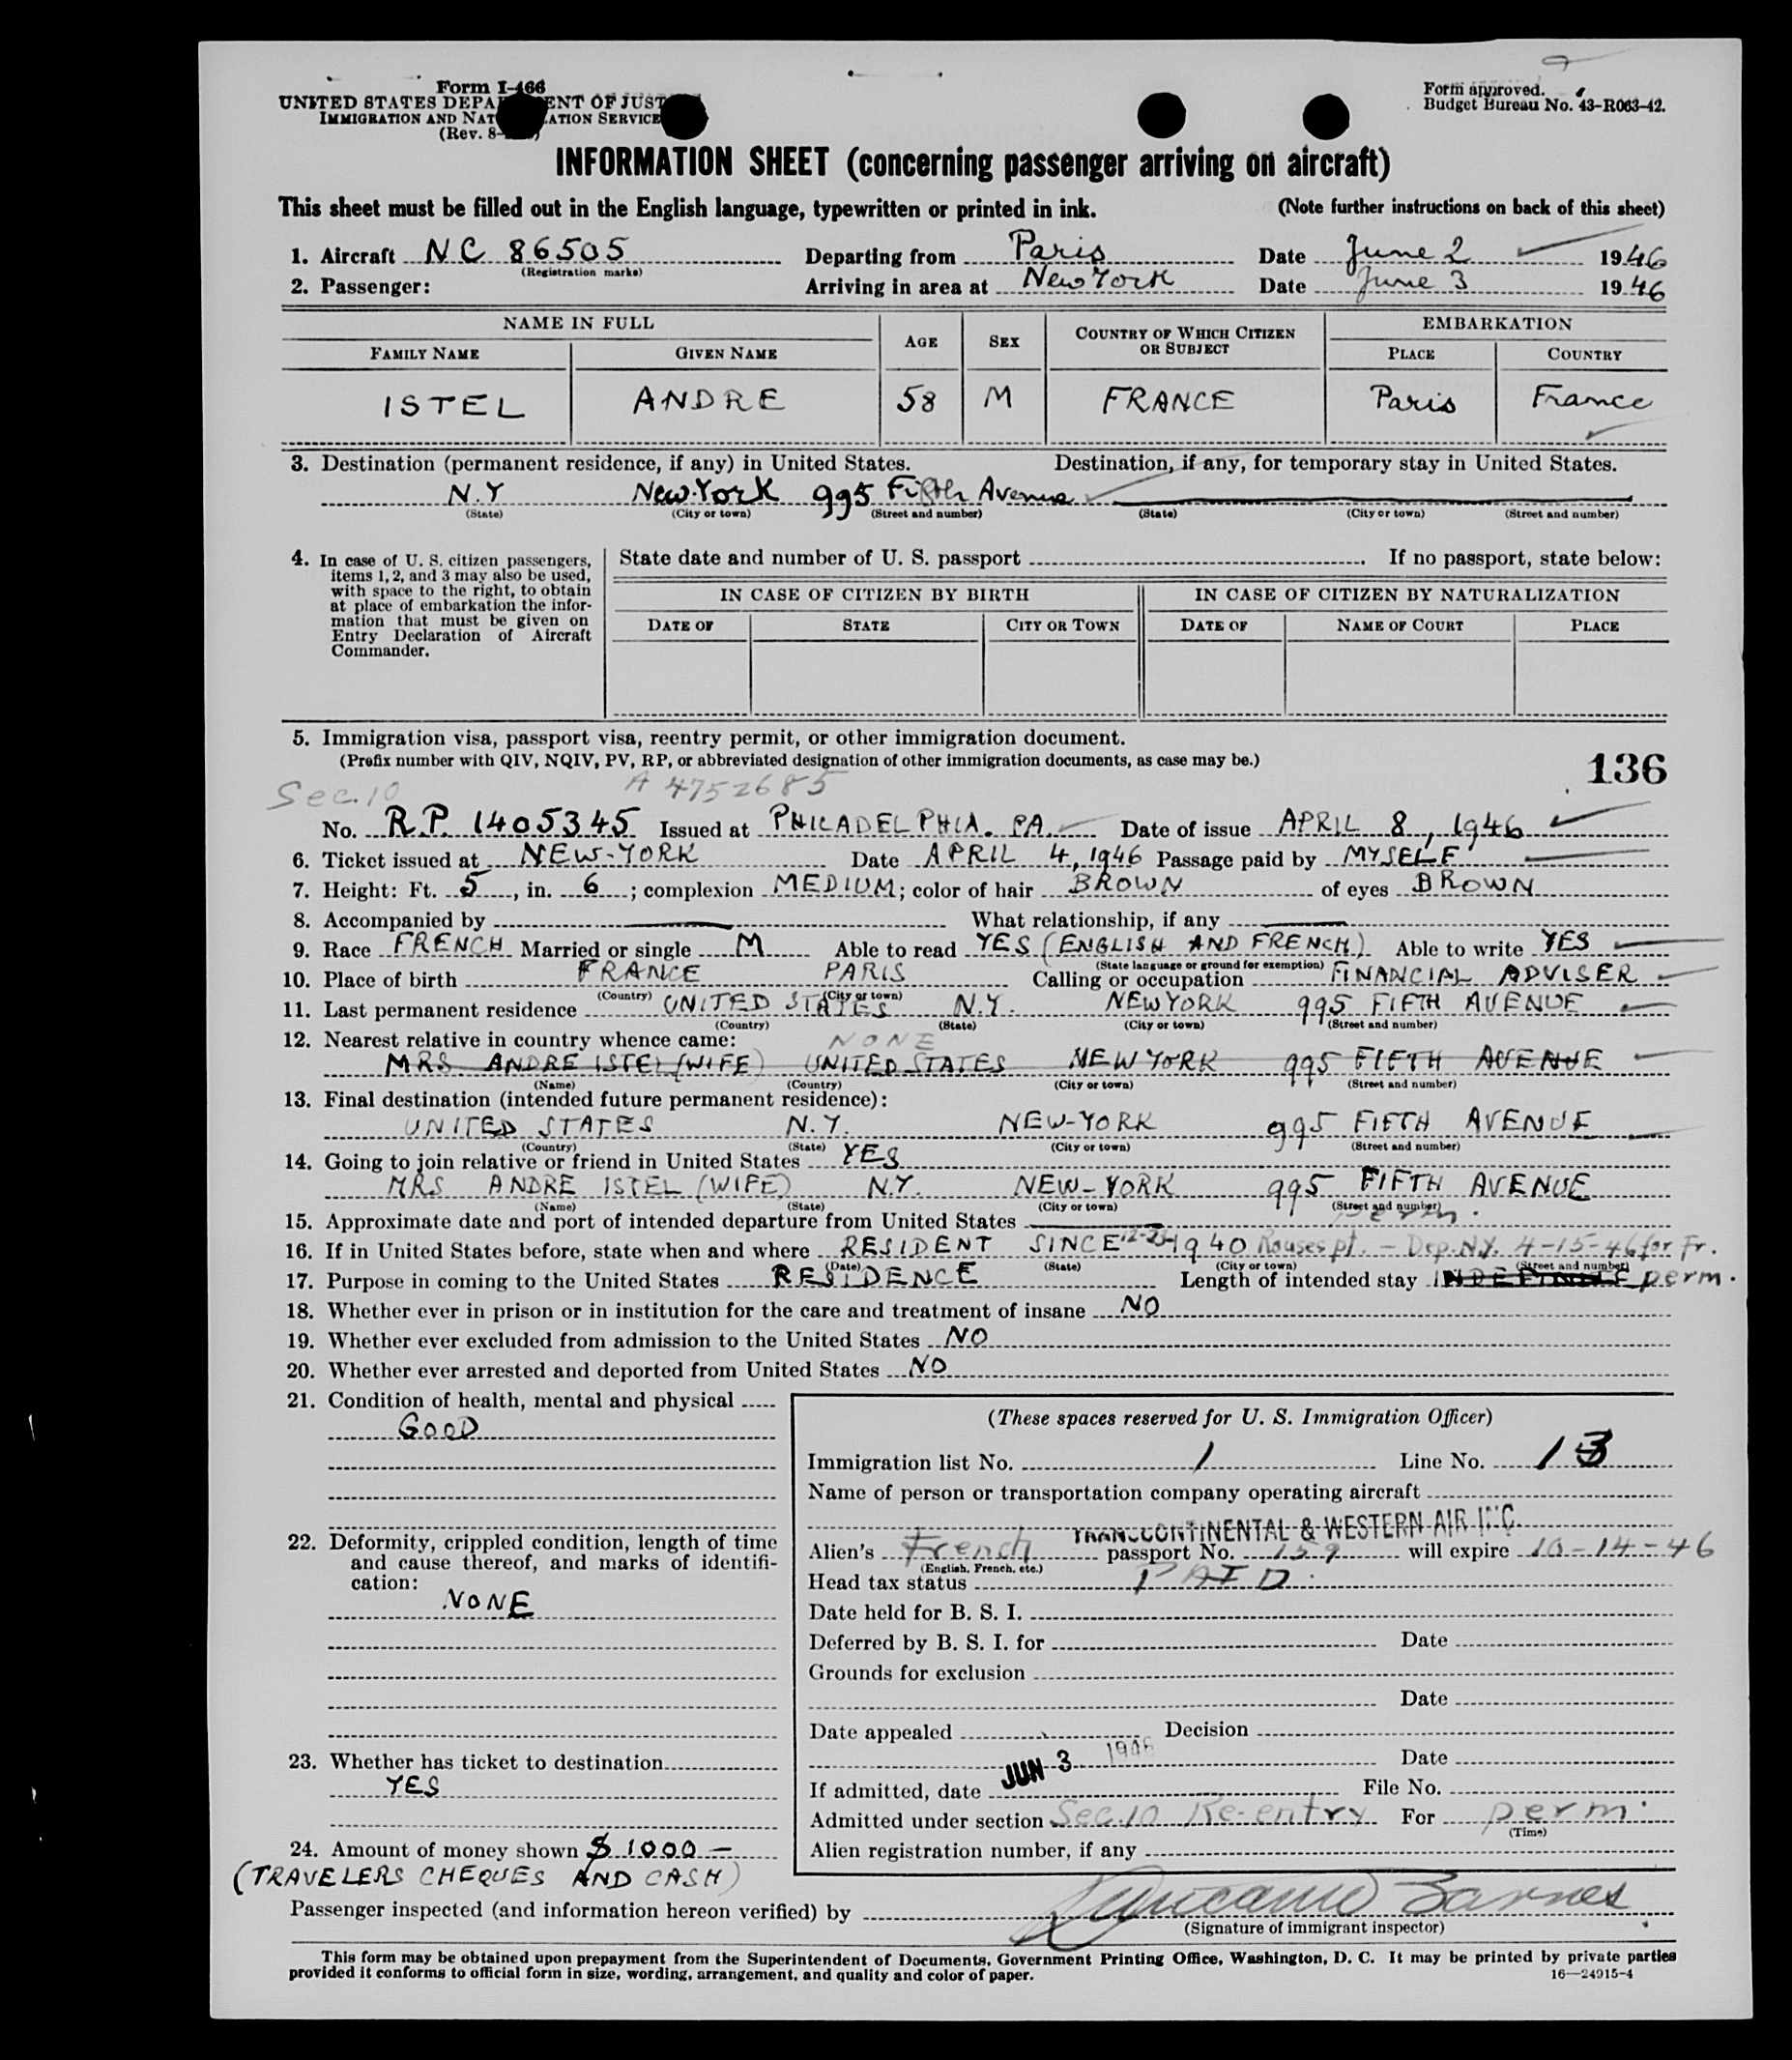 Form I-466
UNITED STATES DEPA ENT OF JUST
IMMIGRATION AND NAT ATION SERVICE
(Rev. 8- )
Form approved.
Budget Bureau No. 43-R063-42.
INFORMATION SHEET (concerning passenger arriving on aircraft)
This sheet must be filled out in the English language, typewritten or printed in ink. (Note further instructions on back of this sheet)
1. Aircraft NC 86505 Departing from Paris Date June 2 1946
(Registration marks)
2. Passenger: Arriving in area at New York Date June 3 1946
NAME IN FULL AGE SEX COUNTRY OF WHICH CITIZEN OR SUBJECT EMBARKATION
FAMILY NAME GIVEN NAME PLACE COUNTRY
ISTEL ANDRE 58 M FRANCE Paris France
3. Destination (permanent residence, if any) in United States. Destination, if any, for temporary stay in United States.
N.Y New-York 995 Fifth Avenue
(State) (City or town) (Street and number) (State) (City or town) (Street and number)
4. In case of U. S. citizen passengers,
items 1, 2, and 3 may also be used,
with space to the right, to obtain
at place of embarkation the infor-
mation that must be given on
Entry Declaration of Aircraft
Commander.
State date and number of U. S. passport If no passport, state below:
IN CASE OF CITIZEN BY BIRTH IN CASE OF CITIZEN BY NATURALIZATION
DATE OF STATE CITY OR TOWN DATE OF NAME OF COURT PLACE
5. Immigration visa, passport visa, reentry permit, or other immigration document.
(Prefix number with QIV, NQIV, PV, RP, or abbreviated designation of other immigration documents, as case may be.)
136
Sec. 10 A 4752685
No. R.P. 1405345 Issued at PHILADELPHIA. PA. Date of issue APRIL 8, 1946
6. Ticket issued at NEW-YORK Date APRIL 4, 1946 Passage paid by MYSELF
7. Height: Ft. 5, in. 6; complexion MEDIUM; color of hair BROWN of eyes BROWN
8. Accompanied by What relationship, if any
9. Race FRENCH Married or single M Able to read YES (ENGLISH AND FRENCH) Able to write YES
(State language or ground for exemption)
10. Place of birth FRANCE PARIS Calling or occupation FINANCIAL ADVISER
(Country) (City or town)
11. Last permanent residence UNITED STATES N.Y. NEW YORK 995 FIFTH AVENUE
(Country) (State) (City or town) (Street and number)
12. Nearest relative in country whence came: NONE
MRS ANDRE ISTEL (WIFE) UNITED STATES NEW YORK 995 FIFTH AVENUE
(Name) (Country) (City or town) (Street and number)
13. Final destination (intended future permanent residence):
UNITED STATES N.Y. NEW-YORK 995 FIFTH AVENUE
(Country) (State) (City or town) (Street and number)
14. Going to join relative or friend in United States YES
MRS ANDRE ISTEL (WIFE) N.Y. NEW-YORK 995 FIFTH AVENUE
(Name) (State) (City or town) (Street and number)
15. Approximate date and port of intended departure from United States perm.
16. If in United States before, state when and where RESIDENT SINCE 12-23-1940 Rouses pt. - Dep. N.Y. 4-15-46 for Fr.
(Date) (State) (City or town) (Street and number)
17. Purpose in coming to the United States RESIDENCE Length of intended stay INDEFINITE perm.
18. Whether ever in prison or in institution for the care and treatment of insane NO
19. Whether ever excluded from admission to the United States NO
20. Whether ever arrested and deported from United States NO
21. Condition of health, mental and physical
GOOD
22. Deformity, crippled condition, length of time
and cause thereof, and marks of identifi-
cation:
NONE
23. Whether has ticket to destination
YES
24. Amount of money shown $ 1000 —
(TRAVELERS CHEQUES AND CASH)
(These spaces reserved for U. S. Immigration Officer)
Immigration list No. 1 Line No. 13
Name of person or transportation company operating aircraft
TRANSCONTINENTAL & WESTERN AIR INC.
Alien's French passport No. 159 will expire 10-14-46
(English, French, etc.)
Head tax status PAID.
Date held for B. S. I.
Deferred by B. S. I. for Date
Grounds for exclusion
Date
Date appealed Decision
Date
If admitted, date JUN 3 1946 File No.
Admitted under section Sec. 10 Re-entry For perm.
(Time)
Alien registration number, if any
Passenger inspected (and information hereon verified) by Barnes
(Signature of immigrant inspector)
This form may be obtained upon prepayment from the Superintendent of Documents, Government Printing Office, Washington, D. C. It may be printed by private parties
provided it conforms to official form in size, wording, arrangement, and quality and color of paper. 16—24915-4